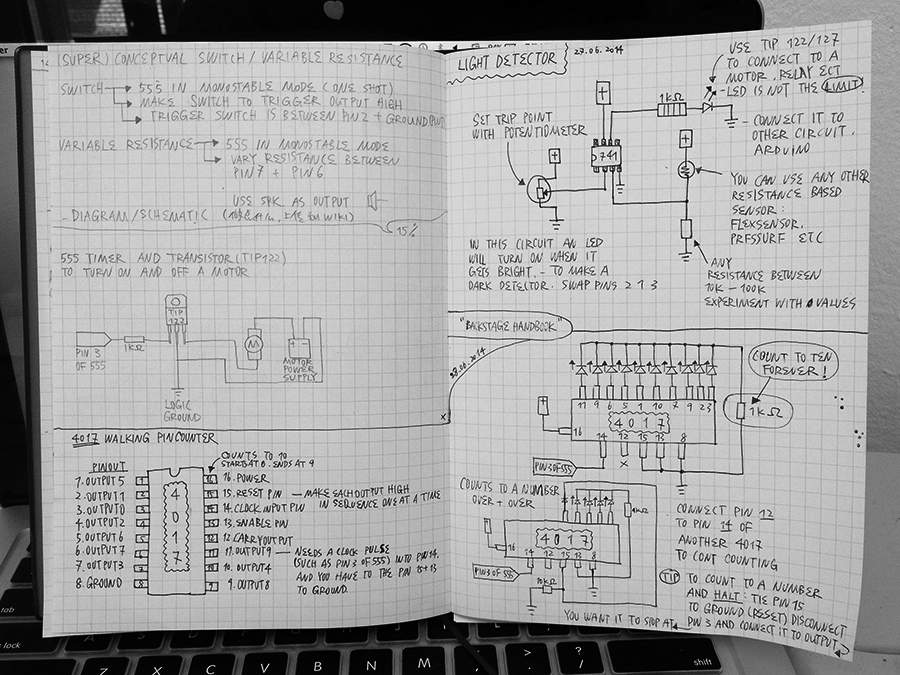 (SUPER) CONCEPTUAL SWITCH / VARIABLE RESISTANCE
SWITCH → 555 IN MONOSTABLE MODE (ONE SHOT)
→ MAKE SWITCH TO TRIGGER OUTPUT HIGH
→ TRIGGER SWITCH IS BETWEEN PIN 2 + GROUND
VARIABLE RESISTANCE → 555 IN MONOSTABLE MODE
→ VARY RESISTANCE BETWEEN
PIN 7 + PIN 6
USE SPK. AS OUTPUT
- DIAGRAM/SCHEMATIC
WIKI)
15%
555 TIMER AND TRANSISTOR (TIP122)
TO TURN ON AND OFF A MOTOR
TIP
122
PIN 3
OF 555
1KΩ
M
+ -
MOTOR
POWER
SUPPLY
LOGIC
GROUND
X
4017 WALKING PIN COUNTER
COUNTS TO 10
START AT 0. ENDS AT 9
PINOUT
1. OUTPUT 5
2. OUTPUT 1
3. OUTPUT 0
4. OUTPUT 2
5. OUTPUT 6
6. OUTPUT 7
7. OUTPUT 3
8. GROUND
1
2
3
4
5
6
7
8
4017
16. POWER
15. RESET PIN — MAKE EACH OUTPUT HIGH
14. CLOCK INPUT PIN IN SEQUENCE ONE AT A TIME
13. ENABLE PIN
12. CARRY OUTPUT
11. OUTPUT 9 — NEEDS A CLOCK PULSE
10. OUTPUT 4 (SUCH AS PIN 3 OF 555) INTO PIN 14.
9. OUTPUT 8 AND YOU HAVE TO THE PIN 15+13
TO GROUND.
LIGHT DETECTOR
27.06.2014
USE TIP 122/127
TO CONNECT TO A
MOTOR, RELAY ECT
- LED IS NOT THE LIMIT!
- CONNECT IT TO
OTHER CIRCUIT.
ARDUINO
SET TRIP POINT
WITH POTENTIOMETER
+
+
+
1KΩ
741
YOU CAN USE ANY OTHER
RESISTANCE BASED
SENSOR:
FLEXSENSOR,
PRESSURE ETC
IN THIS CIRCUIT AN LED
WILL TURN ON WHEN IT
GETS BRIGHT. - TO MAKE A
DARK DETECTOR. SWAP PINS 2 & 3
ANY
RESISTANCE BETWEEN
10K - 100K
EXPERIMENT WITH VALUES
"BACKSTAGE HANDBOOK"
28.06.2014
COUNT TO TEN
FOREVER!
1KΩ
+
16
11 9 6 5 1 10 7 9 2 3
4017
14 12 15 13 8
PIN 3 OF 555
X
COUNTS TO A NUMBER
OVER + OVER
+
16
4017
14 12 15 13 8
1KΩ
PIN 3 OF 555
10KΩ
CONNECT PIN 12
TO PIN 14 OF
ANOTHER 4017
TO CONT COUNTING
TIP TO COUNT TO A NUMBER
AND HALT: TIE PIN 15
TO GROUND (RESET) DISCONNECT
PIN 3 AND CONNECT IT TO OUTPUT
YOU WANT IT TO STOP AT
tab
caps lock
shift
Z X C V B N M < , > . ? /